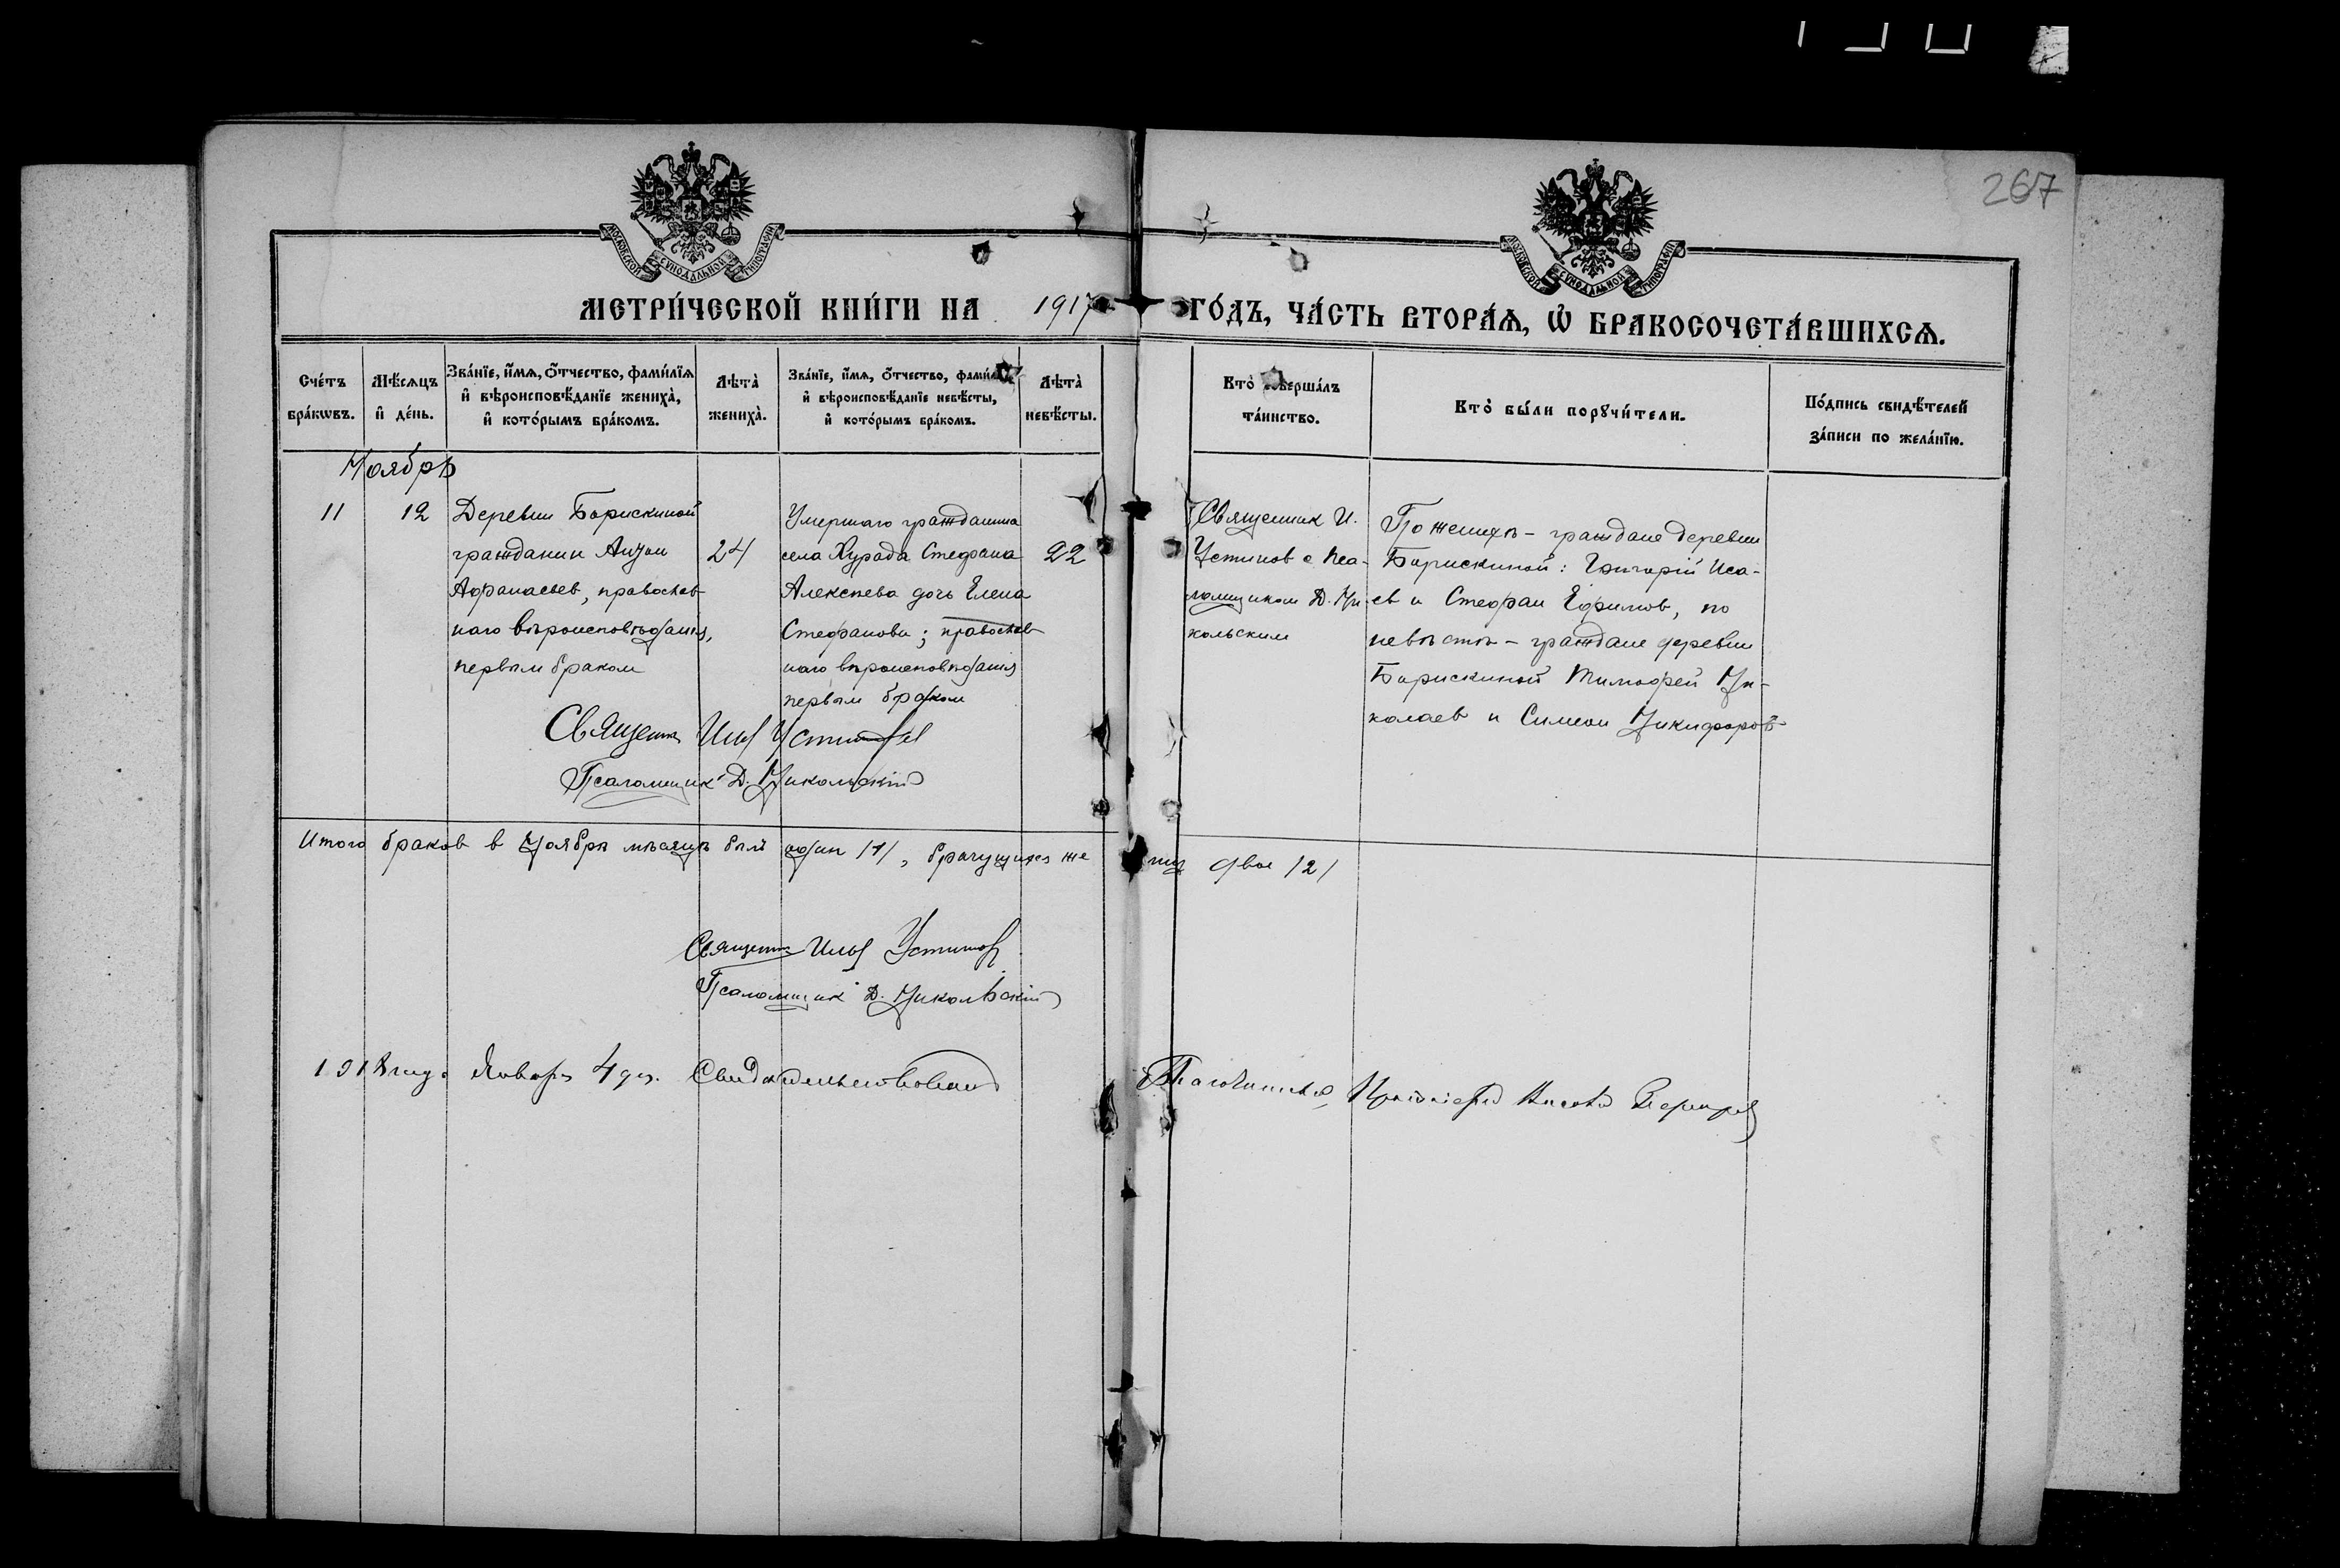 267
МОСКОВСКОЙ СѴНОДАЛЬНОЙ ТИПОГРАФІИ
МОСКОВСКОЙ СѴНОДАЛЬНОЙ ТИПОГРАФІИ
МЕТРИ́ЧЕСКОЙ КНИ́ГИ НА 1917 ГО́ДЪ, ЧА́СТЬ ВТОРА́Ѧ, Ѡ҆ БРАКОСОЧЕТА́ВШИХСѦ.
Сче́тъ
бра́кѡвъ.
Мѣ́сѧцъ
и҆ де́нь.
Зва́нїе, и҆́мѧ, ѻ҆́тчество, фами́лїѧ
и҆ вѣроисповѣ́данїе жениха̀,
и҆ кото́рымъ бра́комъ.
Лѣта̀
жениха̀.
Зва́нїе, и҆́мѧ, ѻ҆́тчество, фами́лїѧ
и҆ вѣроисповѣ́данїе невѣ́сты,
и҆ кото́рымъ бра́комъ.
Лѣта̀
невѣ́сты.
Кто̀ соверша́лъ
та́инство.
Кто̀ бы́ли порꙋчи́тели.
По́дпись свидѣ́телей
за́писи по жела́нїю.
Ноябрь
11
12
Деревни Борискиной
гражданин
Афанасьев, православ
наго вѣроисповѣданія,
первым браком
24
Умершаго гражданина
села Стефана
Алексѣева дочь Елена
Стефанова; православ
наго вѣроисповѣданія
первым браком
22
Священник И.
Устинов с пса-
ломщиком Д. Ни
кольским
По женихѣ - граждане деревни
Борискиной: Григорій Иса-
ев и Стефан Ефимов, по
невѣстѣ - граждане деревни
Борискиной Тимофей Ни-
колаев и Симеон Никифоров
Священник Илья Устинов
Псаломщик Д. Никольскій
Итого браков в Ноябрѣ мѣсяцѣ был один /1/, брачущихся же лиц двое /2/
Священник Илья Устинов
Псаломщик Д. Никольскій
1918 года Января 4 дня. Свидѣтельствовал
Благочинный Протоіерей